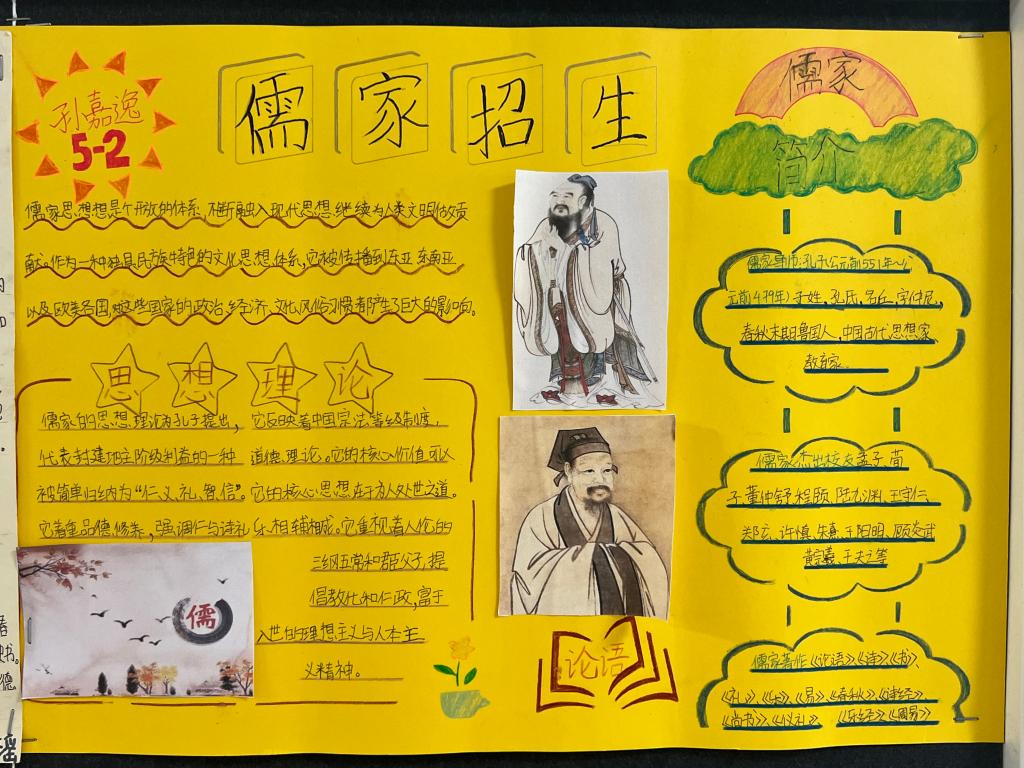 孔嘉逸
5-2
儒家招生
儒家思想想是个开放的体系,不断融入现代思想.继续为人类文明做贡
献。作为一种独具民族特色的文化思想体系,它被传播到东亚.东南亚
以及欧美各国,对这些国家的政治.经济.文化.风俗习惯都产生了巨大的影响。
思想理论
儒家的思想理论为孔子提出,它反映着中国宗法等级制度,
代表封建地主阶级利益的一种道德理论。它的核心价值可以
被简单归纳为“仁、义、礼、智、信”。它的核心思想在于为人处世之道。
它着重品德修养,强调仁与诗礼乐相辅相成。它重视着人伦的
三纲五常和君臣父子,提
倡教化和仁政,富于
入世的理想主义与人本主
义精神。
儒
论语
儒家
简介
儒家导师:孔子(公元前551年~公
元前479年)子姓,孔氏,名丘,字仲尼,
春秋末期鲁国人,中国古代思想家
教育家。
儒家杰出校友孟子、荀
子、董仲舒、程颐、陆九渊、王守仁、
郑玄、许慎、朱熹、王阳明、顾炎武
黄宗羲、王夫之等
儒家著作《论语》《诗》《书》、
《礼》《乐》《易》《春秋》《诗经》
《尚书》、《仪礼》、《乐经》《周易》